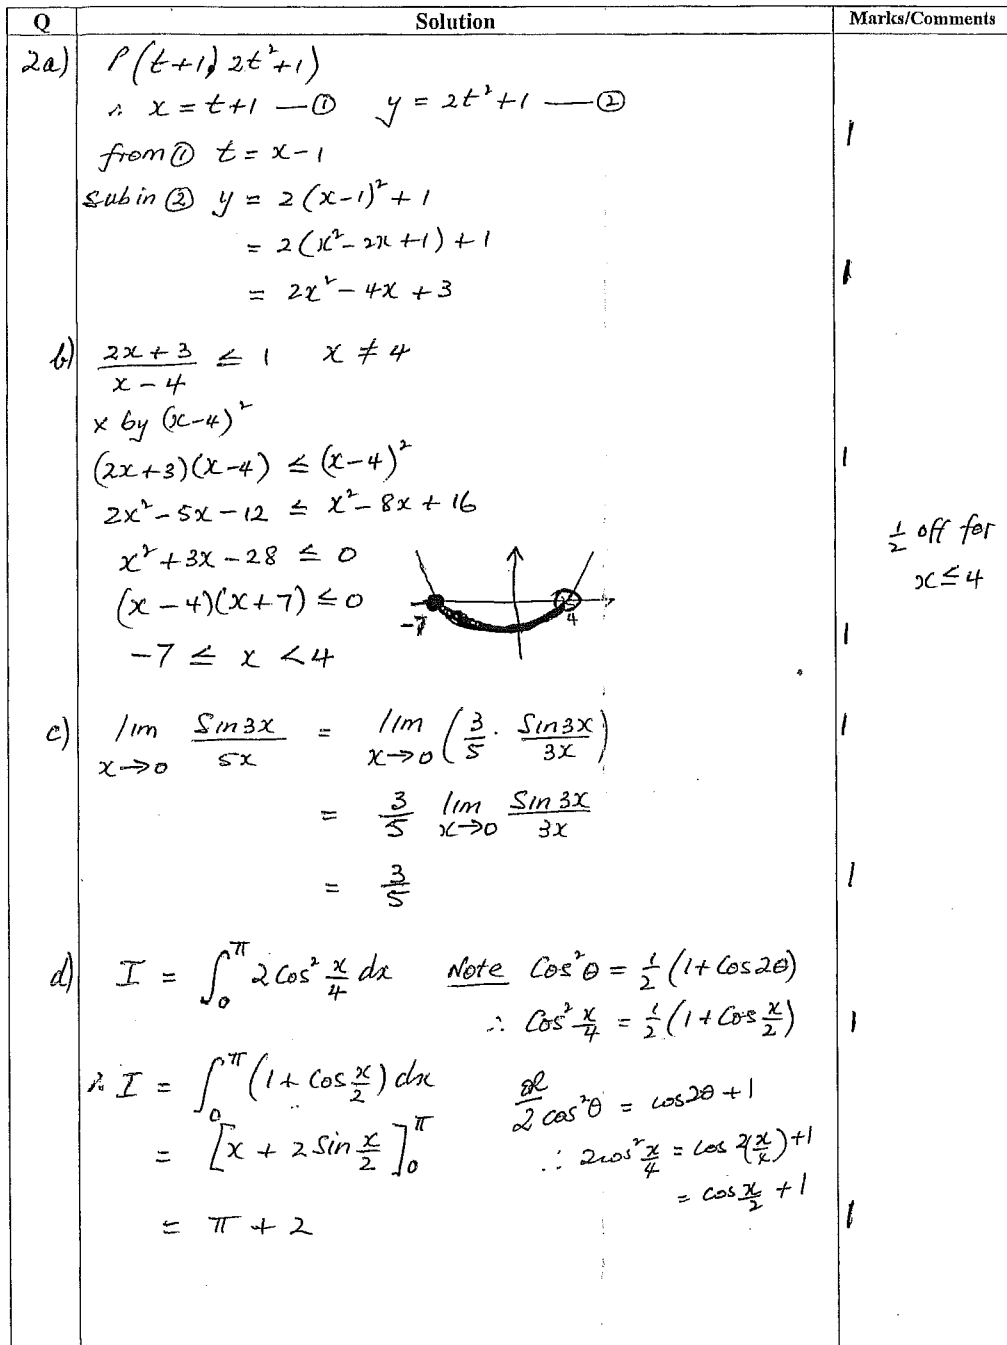 Q Solution Marks/Comments
2a) P(t+1, 2t²+1)
∴ x = t+1 —① y = 2t²+1 —②
1
from ① t = x-1
sub in ② y = 2(x-1)² + 1
= 2(x²-2x+1) + 1
= 2x² - 4x + 3
1
b) (2x+3)/(x-4) ≤ 1 x ≠ 4
× by (x-4)²
(2x+3)(x-4) ≤ (x-4)²
1
2x² - 5x - 12 ≤ x² - 8x + 16
½ off for
x ≤ 4
x² + 3x - 28 ≤ 0
(x-4)(x+7) ≤ 0
-7 4
-7 ≤ x < 4
1
c) lim x→0 Sin3x/5x = lim x→0 (3/5 · Sin3x/3x)
1
= 3/5 lim x→0 Sin3x/3x
= 3/5
1
d) I = ∫₀^π 2Cos² x/4 dx Note Cos²θ = ½(1+Cos2θ)
∴ Cos² x/4 = ½(1+Cos x/2)
1
∴ I = ∫₀^π (1 + Cos x/2) dx
or
2cos²θ = cos2θ + 1
= [x + 2Sin x/2]₀^π
∴ 2cos² x/4 = cos 2(x/4) + 1
= cos x/2 + 1
= π + 2
1